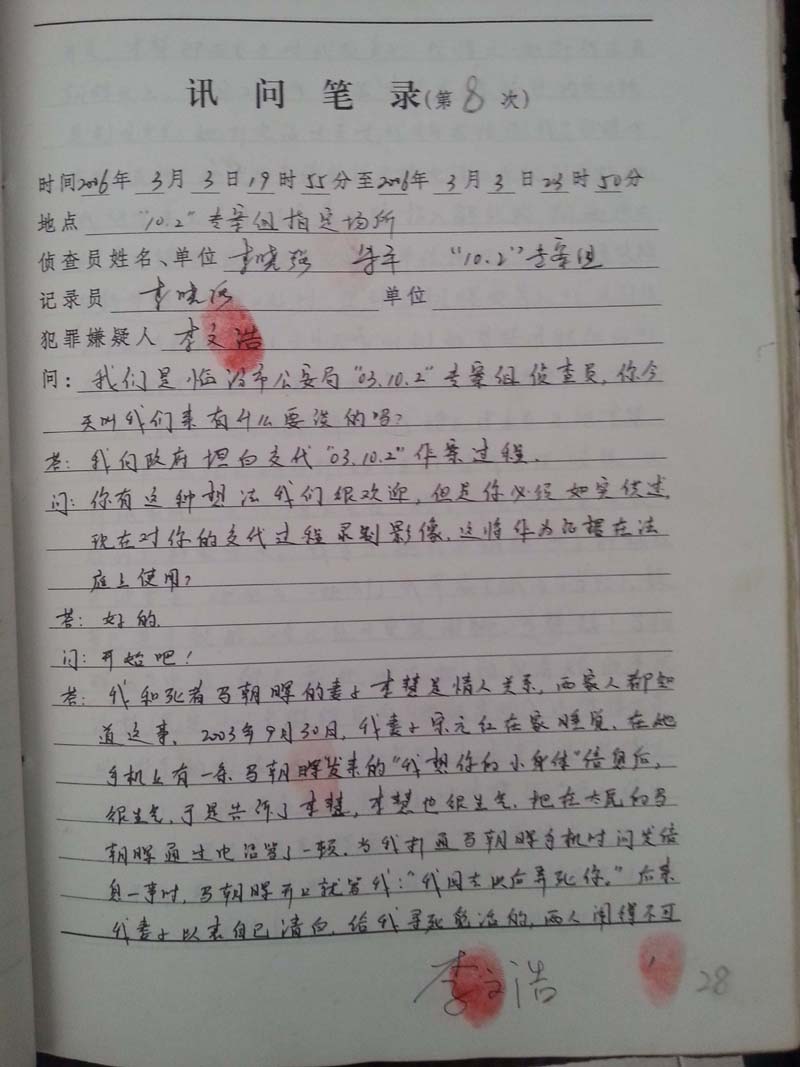 讯问笔录(第8次)
时间2006年3月3日19时55分至2006年3月3日23时50分
地点 "10.2"专案组指定场所
侦查员姓名、单位 李晓强 "10.2"专案组
记录员 李晓强 单位
犯罪嫌疑人 李文浩
问:我们是临汾市公安局"03.10.2"专案组侦查员,你今
天叫我们来有什么要谈的吗?
答:我向政府坦白交代"03.10.2"作案过程.
问:你有这种想法我们很欢迎,但是你必须如实供述,
现在对你的交代过程录制影像,这将作为证据在法
庭上使用?
答:好的.
问:开始吧!
答:我和死者马朝晖的妻子李慧是情人关系,两家人都知
道这事.2003年9月30日,我妻子宋元红在家睡觉,在她
手机上有一条马朝晖发来的"我想你的小身体"信息后,
很生气,于是告诉了李慧,李慧也很生气.把在太原的马
朝晖通过电话骂了一顿.当我打通马朝晖手机时问发信
息一事时,马朝晖开口就骂我:"我回去以后弄死你。"后来
我妻子以表自己清白,给我寻死觅活的,两人闹得不可
李文浩
28